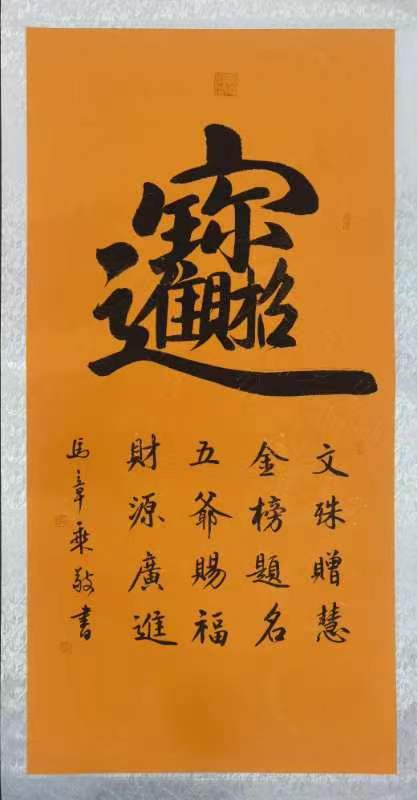 招財進寶
文殊贈慧
金榜題名
五爺賜福
財源廣進
馬章乘敬書